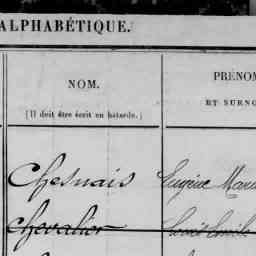 ALPHABÉTIQUE.
NOM. PRÉNO
[Il doit être écrit en bâtarde.] ET SURNO
Chesnais Eugène Marie
Chevalier Louis Emile